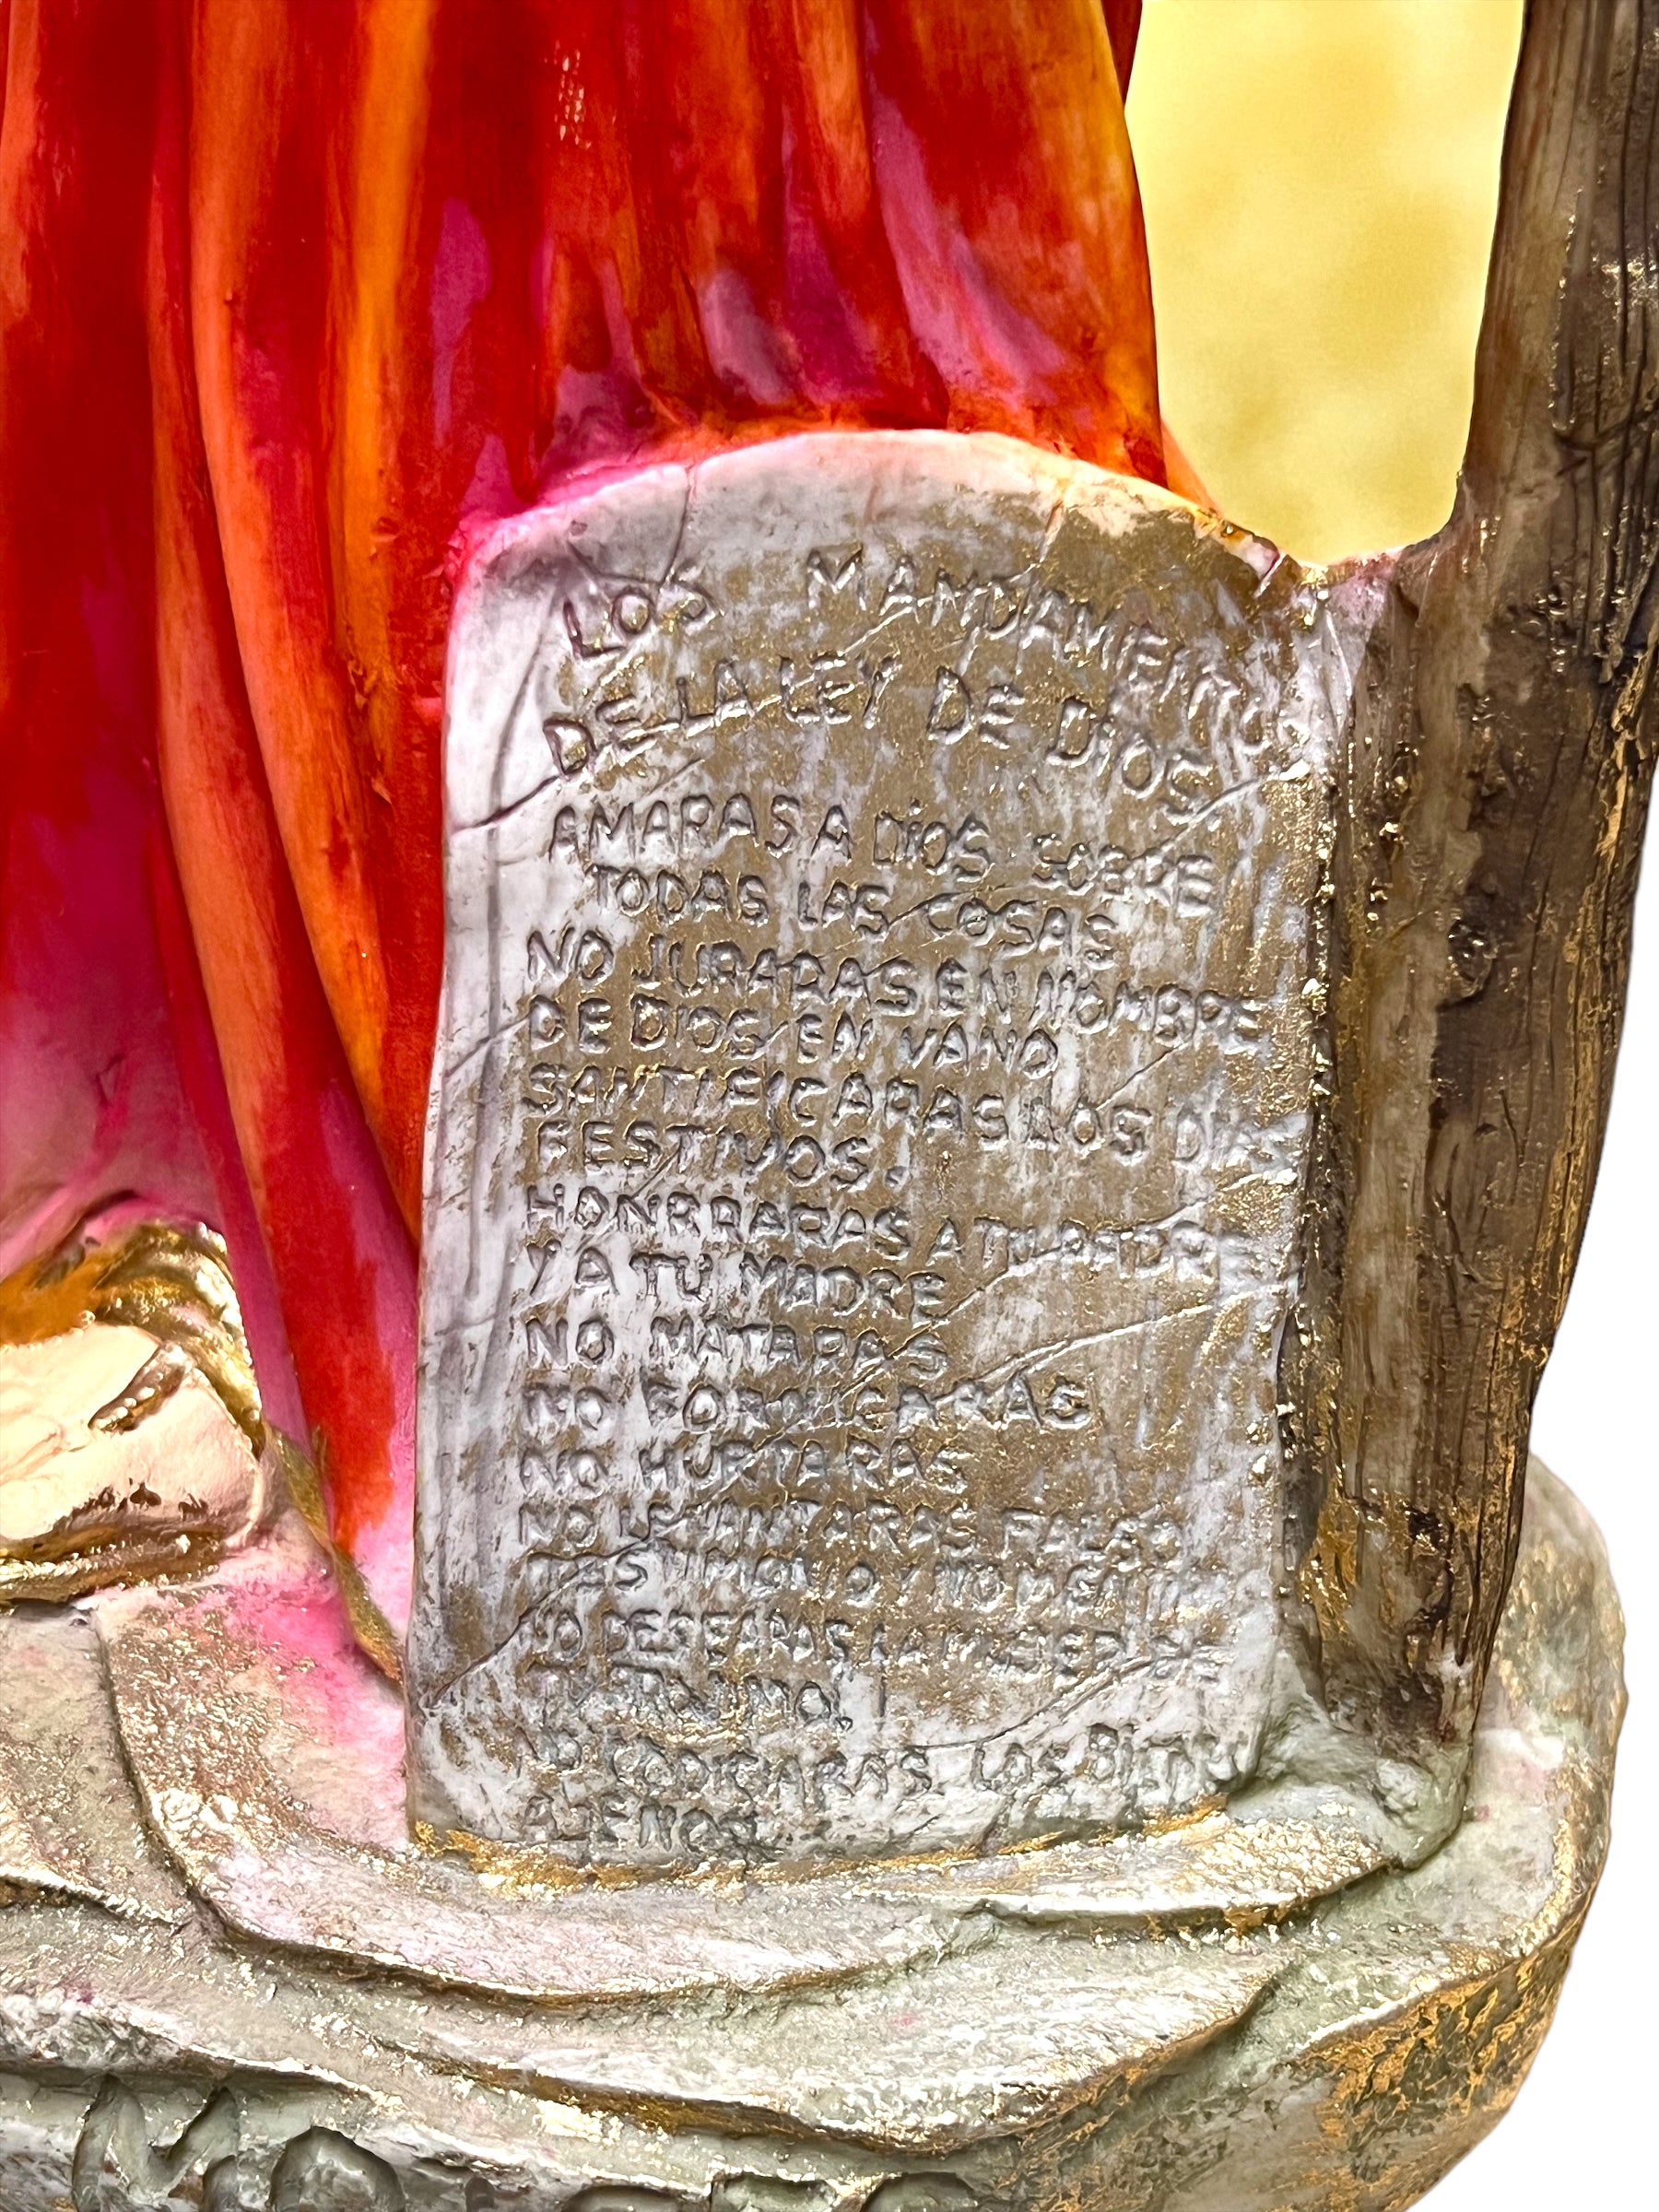 LOS MANDAMIENTOS
DE LA LEY DE DIOS.
AMARAS A DIOS SOBRE
TODAS LAS COSAS
NO JURARAS EN NOMBRE
DE DIOS EN VANO
SANTIFICARAS LOS DIAS
FESTIVOS.
HONRRARAS A TU PADRE
Y A TU MADRE
NO MATARAS
NO FORNICARAS
NO HURTARAS
NO LEVANTARAS FALSO
TESTIMONIO Y NO MENTIRAS
NO DESEARAS LA MUJER DE
TU PROJIMO.
NO CODICIARAS LOS BIENES
AJENOS